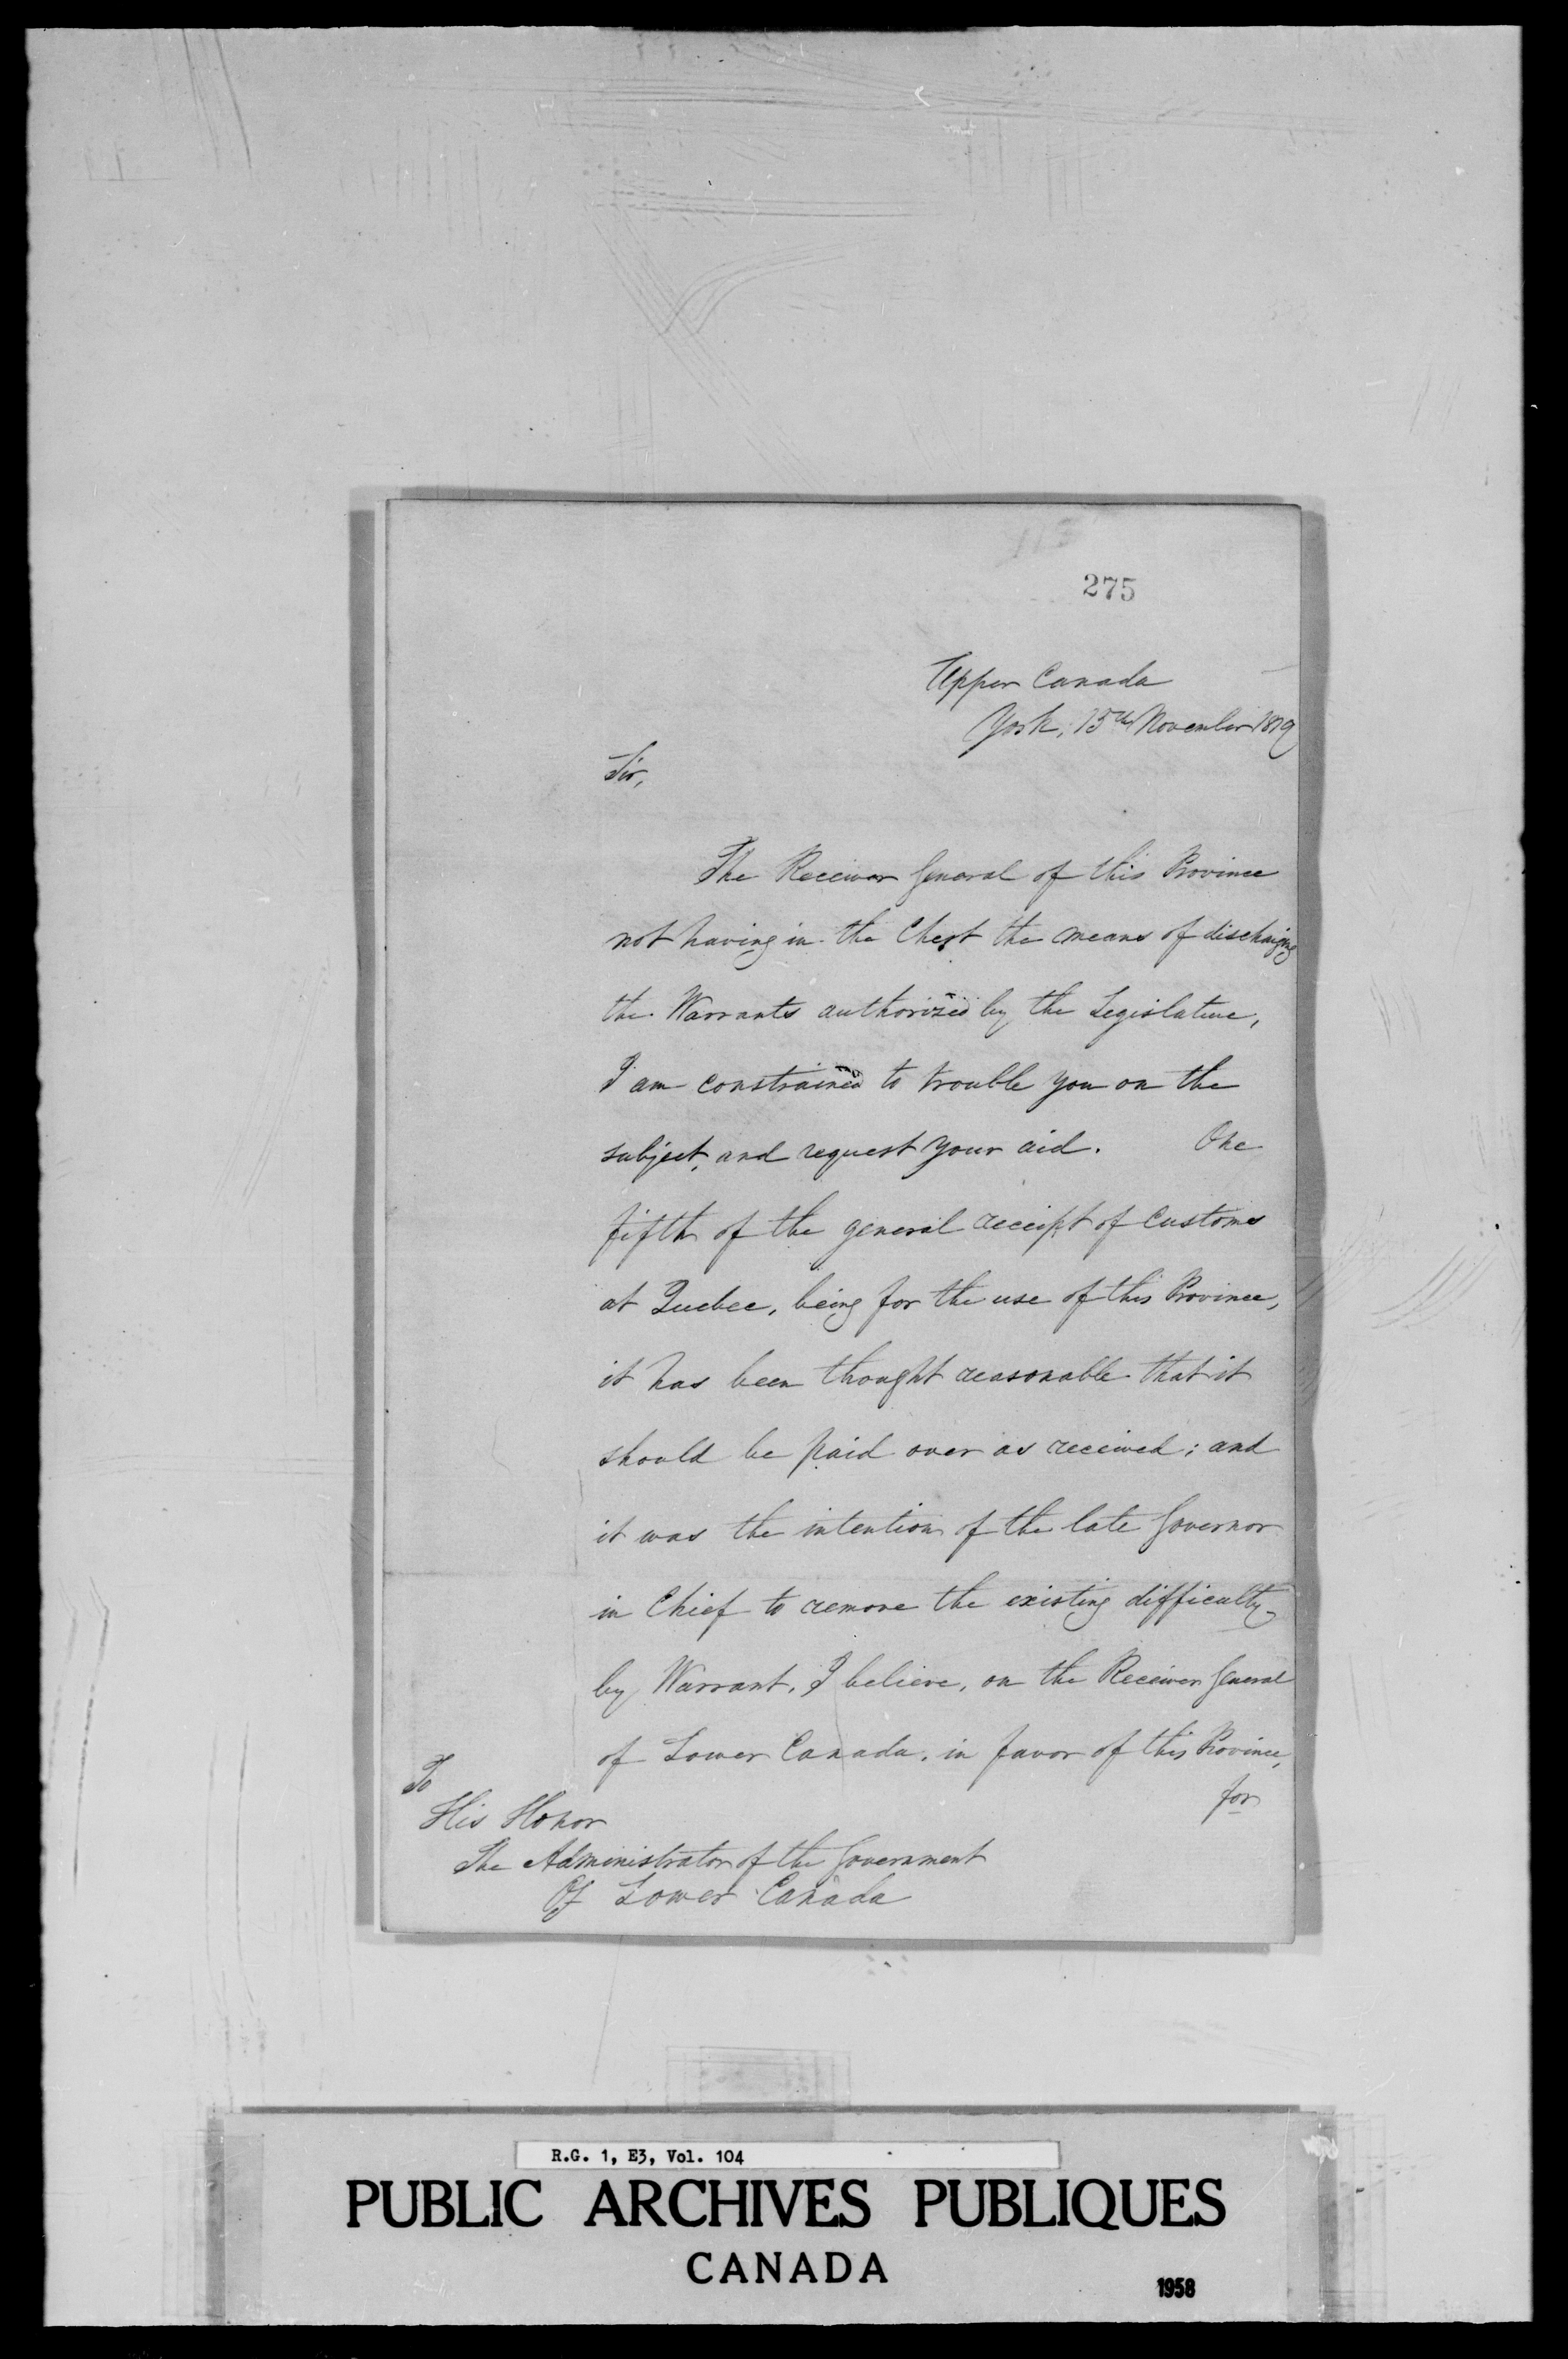 275
Upper Canada
York, 15th November 1819
Sir,
The Receiver General of this Province
not having in the Chest the means of discharging
the Warrants authorized by the Legislature,
I am constrained to trouble you on the
subject, and request your aid. One
fifth of the general receipt of Customs
at Quebec, being for the use of this Province,
it has been thought reasonable that it
should be paid over as received; and
it was the intention of the late Governor
in Chief to remove the existing difficulty
by Warrant, I believe, on the Receiver General
of Lower Canada, in favor of this Province,
for
To
His Honor
The Administrator of the Government
Of Lower Canada
R.G. 1, E3, Vol. 104
PUBLIC ARCHIVES PUBLIQUES
CANADA
1958